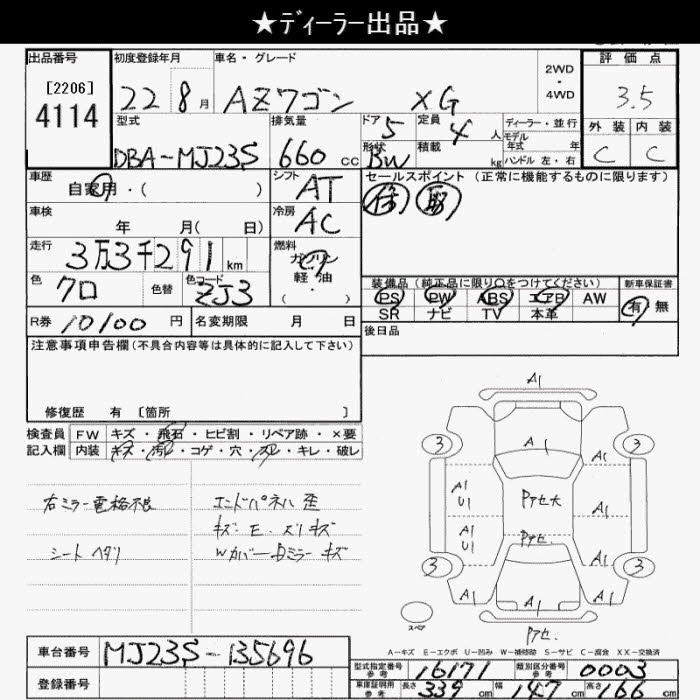 ★ディーラー出品★
出品番号
[2206]
4114
初度登録年月
22 8月
車名・グレード
AZワゴン XG
2WD
・
4WD
評価点
3.5
外装 内装
C C
型式
DBA-MJ23S
排気量
660 cc
ドア 5
定員 4 人
形状 BW
積載 kg
ディーラー・並行
モデル
年式 年
ハンドル 左・右
車歴
自家用・( )
シフト
AT
車検
年 月( 日)
冷房
AC
走行
3万3千291 km
燃料
ガソリン
軽油
( ・ )
色
クロ
色替
色コード
ZJ3
セールスポイント (正常に機能するものに限ります)
装備品(純正品に限り○をつけてください)
PS PW ABS エアB AW
SR ナビ TV 本革
新車保証書
有 無
R券 10100 円
名変期限 月 日
後日品
注意事項申告欄(不具合内容等は具体的に記入して下さい)
修復歴 有 [箇所 ]
検査員 FW キズ・飛石・ヒビ割・リペア跡・×要
記入欄 内装 キズ・汚れ・コゲ・穴・スレ・キレ・破レ
右ミラー電格不良
シート ヘタリ
エンドパネル 歪
キズ・E・ズリキズ
Wカバー・Dミラー キズ
A1
A1
3
3
A1
U1
A1
U1
Pアセ大
Pアセ.
A1
A1
3
3
A1
A1
A1
Pアセ.
スペア
A-キズ E-エクボ U-凹み W-補修跡 S-サビ C-腐食 XX-交換済
車台番号
MJ23S-135696
登録番号
型式指定番号
参考
16171
類別区分番号
参考
0003
車庫証明用
参考
長さ 339 cm 幅 147 cm 高さ 166 cm